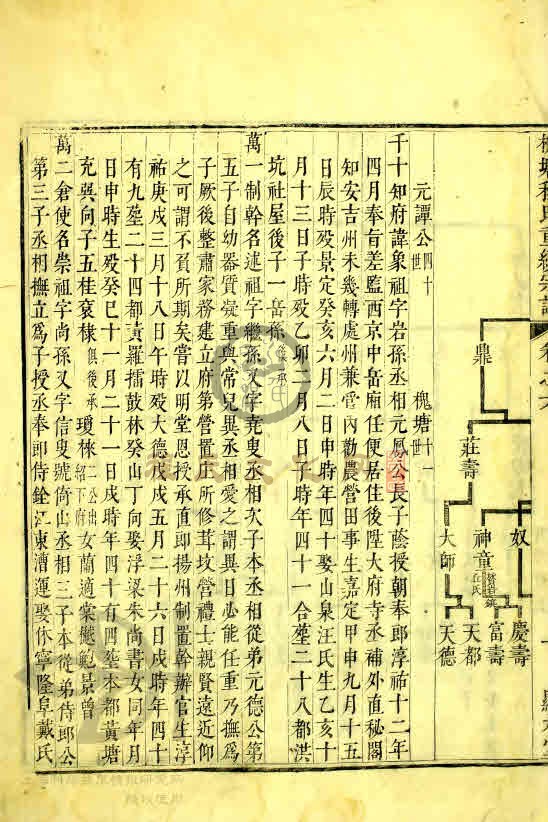 鼎
莊壽
奴
神童
大師
慶壽
富壽
天都
天德
元譚公四十世
槐塘十一世
千十知府諱象祖字岩孫丞相元鳳公長子蔭授朝奉郎淳祐十二年
四月奉旨差監西京中岳廟任便居住後陞大府寺丞補外直秘閣
知安吉州未幾轉處州兼管內勸農營田事生嘉定甲申九月十五
日辰時歿景定癸亥六月二日申時年四十娶山泉汪氏生乙亥十
月十三日子時歿乙卯二月八日子時年四十一合塟二十八都洪
坑社屋後子一岳孫
萬一制幹名述祖字繼孫又字堯叟丞相次子本丞相從弟元德公第
五子自幼器質凝重與常兒異丞相愛之謂異日必能任重乃撫爲
子厥後整肅家務建立府第營置庄所修茸坟塋禮士親賢遠近仰
之可謂不負所期矣嘗以明堂恩授承直郎揚州制置幹辦官生淳
祐庚戌三月十八日午時歿大德戊戌五月二十六日戌時年四十
有九塟二十四都責羅擂鼓林癸山丁向娶浮梁朱尚書女同年月
日申時生歿癸巳十一月二十一日戌時年四十有四塟本都黃塘
充巽向子五桂袞棣俱後承瓊楙二公出紹下府女蘭適棠樾鮑景曾
萬二倉使名崇祖字尚孫又字信叟號倚山丞相三子本從弟侍郎公
第三子丞相撫立爲子授丞奉郎侍銓江東漕運娶休寧隆阜戴氏